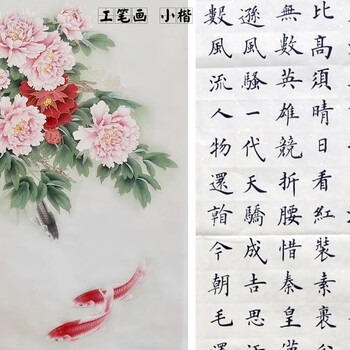 工笔画 小楷
比高須晴日看紅裝素裹
無數英雄競折腰惜秦皇
遜風騷一代天驕成吉思
數風流人物還今朝毛